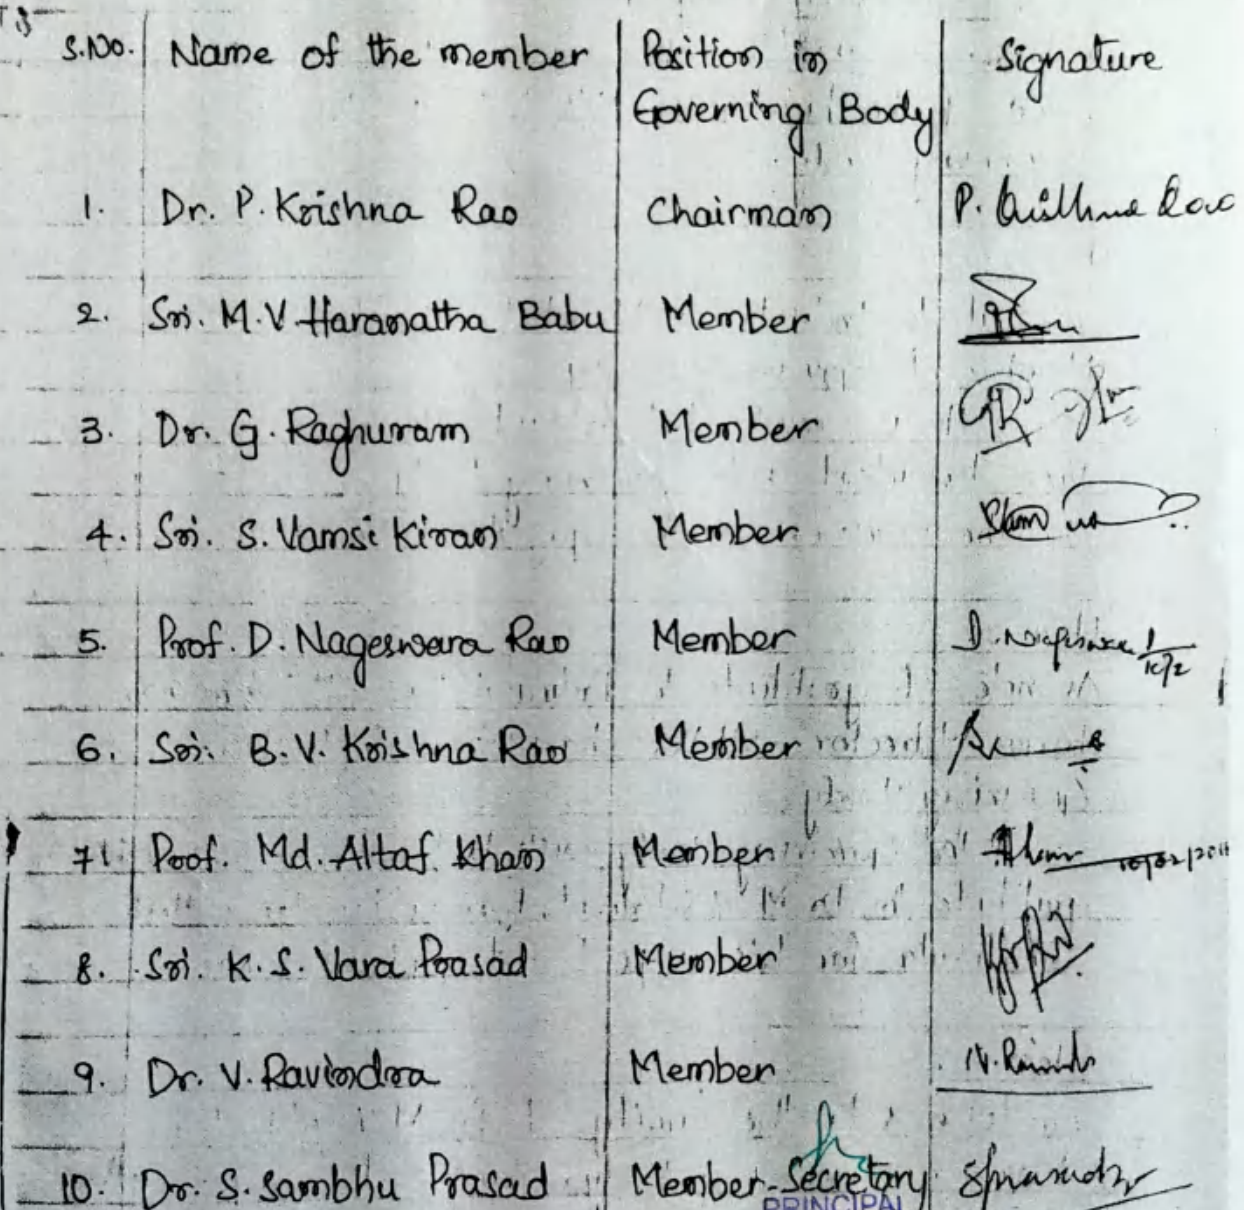 S.No. Name of the member Position in Signature
Governing Body
1. Dr. P. Krishna Rao Chairman P. Krishna Rao
2. Sri. M.V Haranatha Babu Member
3. Dr. G. Raghuram Member
4. Sri. S. Vamsi Kiran Member
5. Prof. D. Nageswara Rao Member
6. Sri. B.V. Krishna Rao Member
7. Prof. Md. Altaf Khan Member
8. Sri. K.S. Vara Prasad Member
9. Dr. V. Ravindra Member
10. Dr. S. Sambhu Prasad Member-Secretary
PRINCIPAL